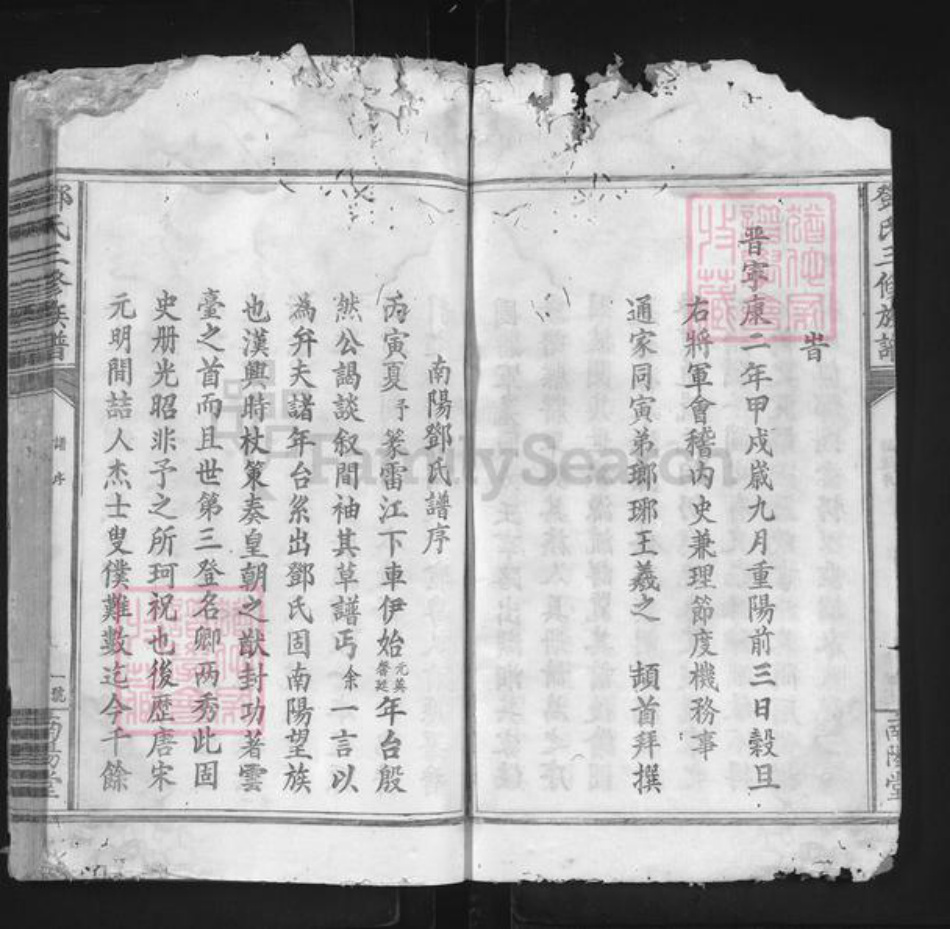 鄧氏三修族譜
南陽堂
旹
晋寜康二年甲戌歲九月重陽前三日榖旦
右將軍會稽内史兼理節度機務事
通家同寅弟瑯琊王羲之 頓首拜撰
南陽鄧氏譜序
丙寅夏予篆雷江下車伊始元英馨廷年台殷
然公謁談叙間袖其草譜丐余一言以
為弁夫諸年台系出鄧氏固南陽望族
也漢興時杖策奏皇朝之猷封功著雲
臺之首而且世第三登名卿两秀此固
史册光昭非予之所珂祝也後歷唐宋
元明間喆人杰士叟僕難數迄今千餘
鄧氏三修族譜
譜序
一號
南陽堂
FamilySearch